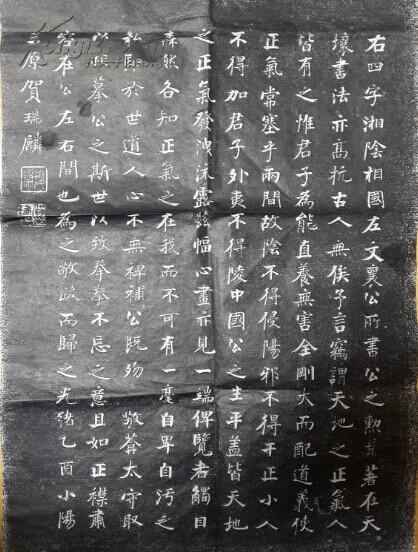 右四字湘陰相國左文襄公所書公之勳業著在天
壤書法亦高抗古人無俟予言竊謂天地之正氣人
皆有之惟君子為能直養無害全剛大而配道義使
正氣常塞乎兩間故陰不得侵陽邪不得干正小人
不得加君子外夷不得陵中國公之生平蓋皆天地
之正氣發洩流露茲幅心畫亦見一端俾覽者觸目
森然各知正氣之在我而不可有一毫自畀自污之
私即於世道人心不無裨補公既歿 敬菴太守取
以暎摹公之斯世以致拳拳不忘之意且如正襟肅
容在公左右間也為之敬跋而歸之光緒乙酉小陽
三原賀瑞麟